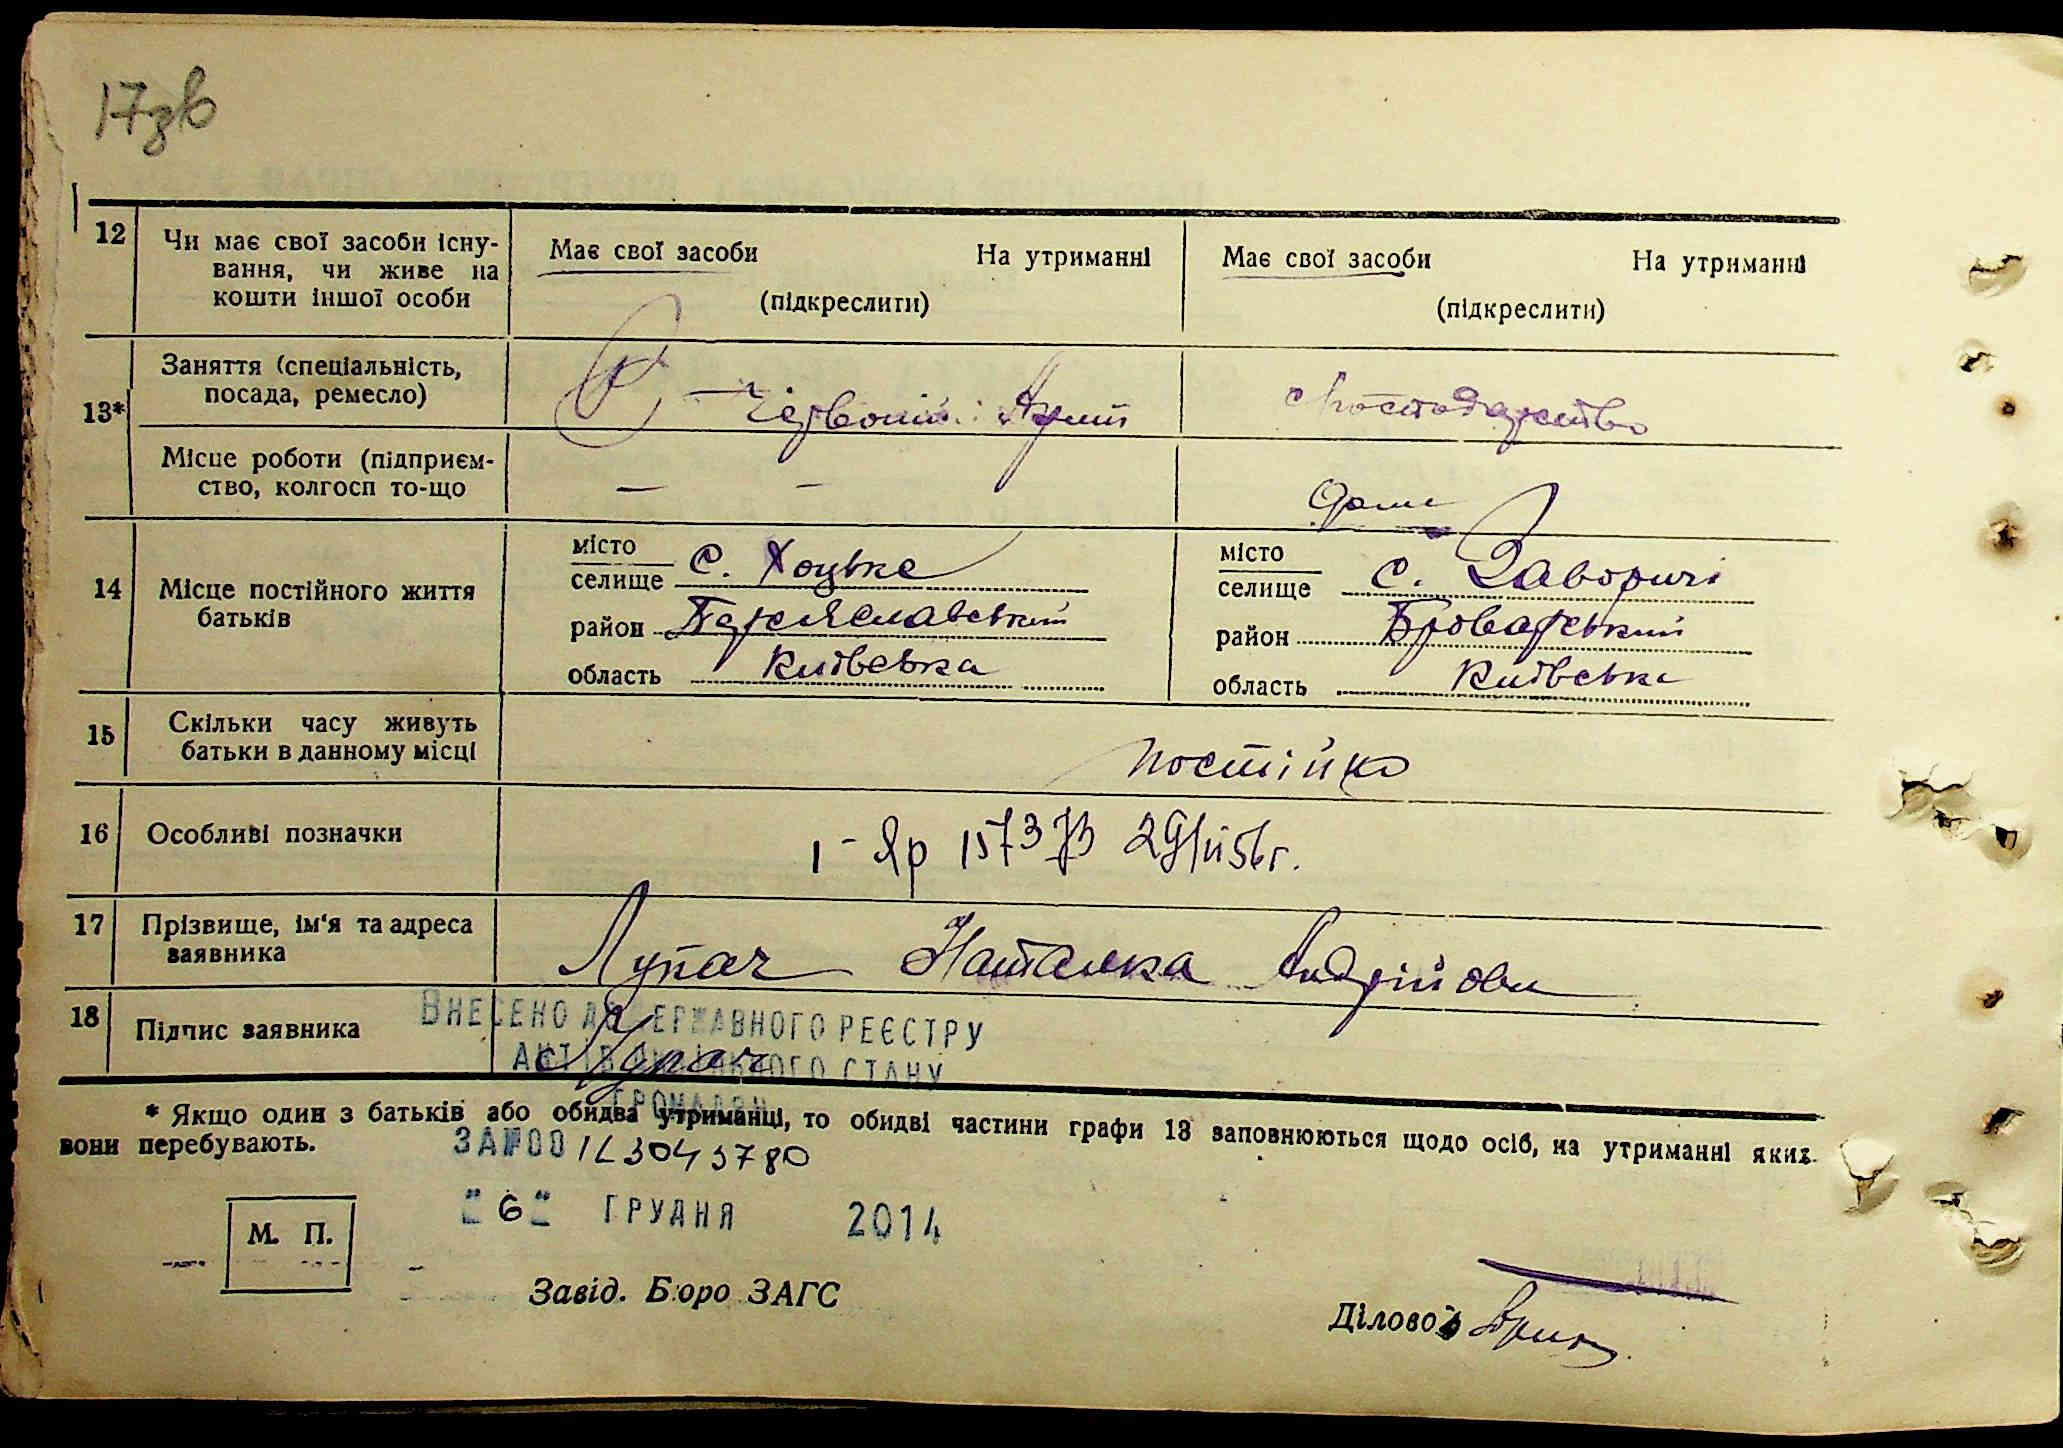 17зв
12 Чи має свої засоби існу-
вання, чи живе на
кошти іншої особи
Має свої засоби На утриманні
(підкреслити)
Має свої засоби На утриманні
(підкреслити)
13* Заняття (спеціальність,
посада, ремесло)
Червоній Армії
господарство
Місце роботи (підприєм-
ство, колгосп то-що
— —
дома
14 Місце постійного життя
батьків
місто
селище с. Хоцьке
район Переяславський
область Київська
місто
селище с. Заворичі
район Броварський
область Київська
15 Скільки часу живуть
батьки в данному місці
постійно
16 Особливі позначки
I-Яр 157373 29/II 56г.
17 Прізвище, ім'я та адреса
заявника
Лупач Наталка Андрійовна
18 Підпис заявника
Лупач
ВНЕСЕНО ДО ДЕРЖАВНОГО РЕЄСТРУ
АКТІВ ЦИВІЛЬНОГО СТАНУ
ГРОМАДЯН
* Якщо один з батьків або обидва утриманці, то обидві частини графи 13 заповнюються щодо осіб, на утриманні яких
вони перебувають.
ЗА №00
"6" ГРУДНЯ 2014
М. П.
Завід. Бюро ЗАГС
Діловод